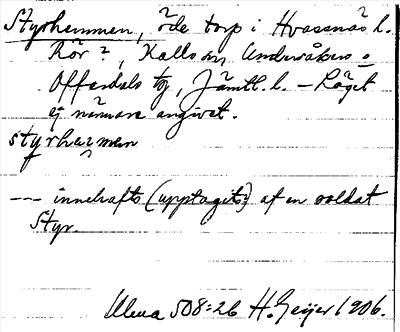 Styrhemmen, öde torp i Hvassnäs l.
Rör?, Kalls sn, Undersåkers o.
Offerdals tg, Jämtl. l. – Läget
ej närmare angivet.
styrhæmen
--- innehafts (upptagits?) af en soldat
Styr.
Ulma 508:26 H. Geijer 1906.